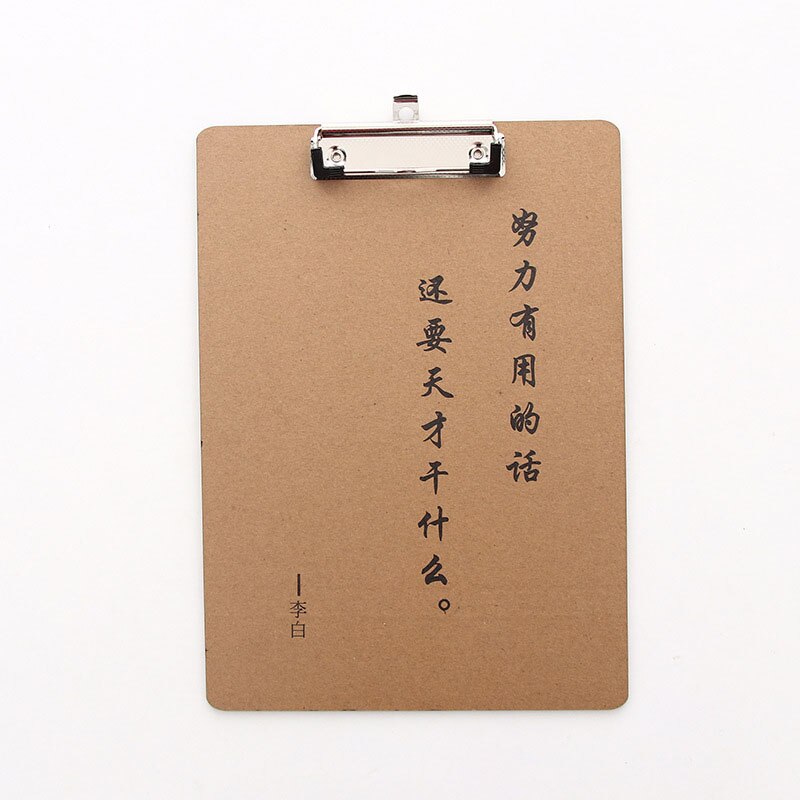 努力有用的话
还要天才干什么。
—李白